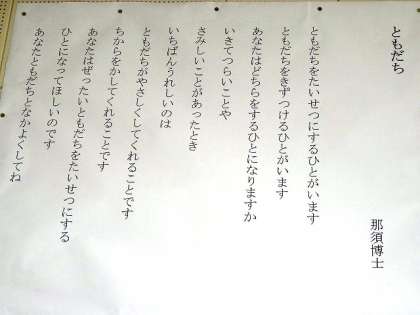 ともだち
那須博士
ともだちをたいせつにするひとがいます
ともだちをきずつけるひとがいます
あなたはどちらをするひとになりますか
いきてつらいことや
さみしいことがあったとき
いちばんうれしいのは
ともだちがやさしくしてくれることです
ちからをかしてくれることです
あなたはぜったいともだちをたいせつにする
ひとになってほしいのです
あなたともだちとなかよくしてね